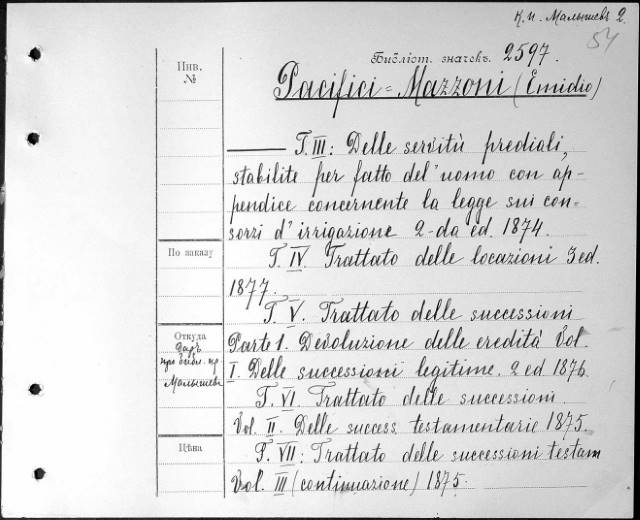 К. И. Малышевъ 2.
54
Библіот. значекъ. 2597.
Инв.
№
Pacifici-Mazzoni (Emidio)
——— T. III: Delle servitù prediali,
stabilite per fatto del'uomo con ap-
pendice concernente la legge sui con-
sorzi d'irrigazione 2-da ed. 1874.
По заказу
T. IV. Trattato delle locazioni 3 ed.
1877.
T. V. Trattato delle successioni
Откуда
Даръ
Parte 1. Devoluzione delle eredità Vol.
проф.
I. Delle successioni legitime. 2 ed 1876.
Малышева
T. VI. Trattato delle successioni.
Vol. II. Delle success. testamentarie 1875.
Цѣна
T. VII: Trattato delle successioni testam
Vol. III (continuazione) 1875.